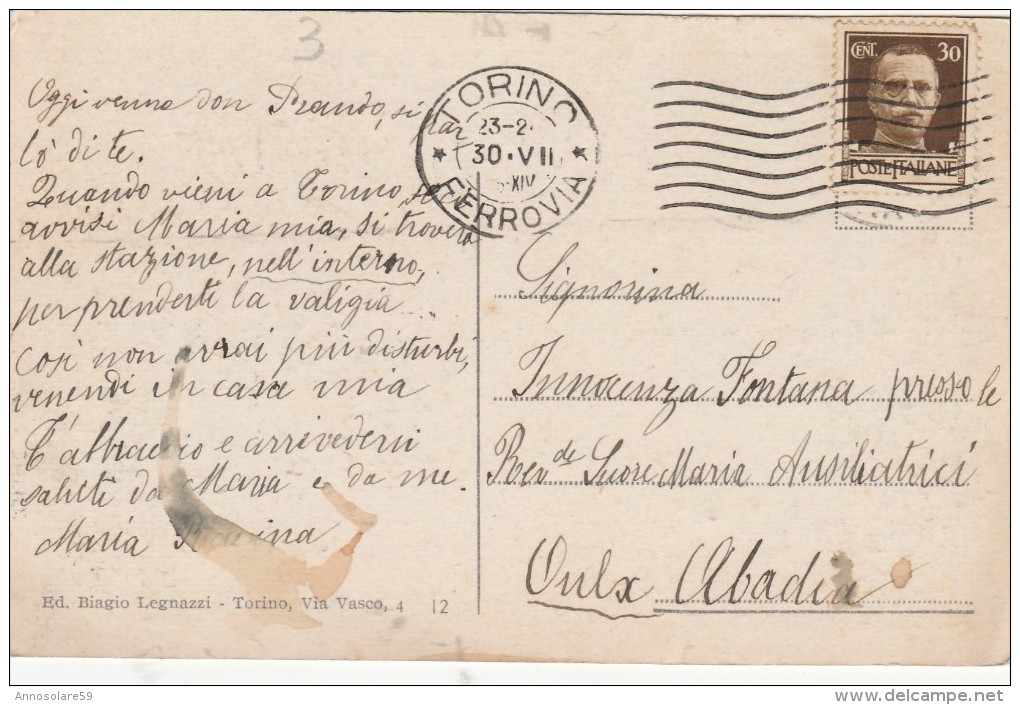 3
Oggi venne don Prando, si par
lò di te.
Quando vieni a Torino, se
avvisi Maria mia, si troverà
alla stazione, nell'interno,
per prenderti la valigia
così non avrai più disturbi,
venendi in casa mia
T'abbraccio e arrivederci
saluti da Maria e da me.
Maria
Ed. Biagio Legnazzi - Torino, Via Vasco, 4 12
TORINO
23-2
30·VII
XIV
FERROVIA
CENT. 30
POSTE ITALIANE
Signorina
Innocenza Fontana presso le
Rev.de Suore Maria Ausiliatrici
Oulx Abadia
Annosolare59
www.delcampe.net